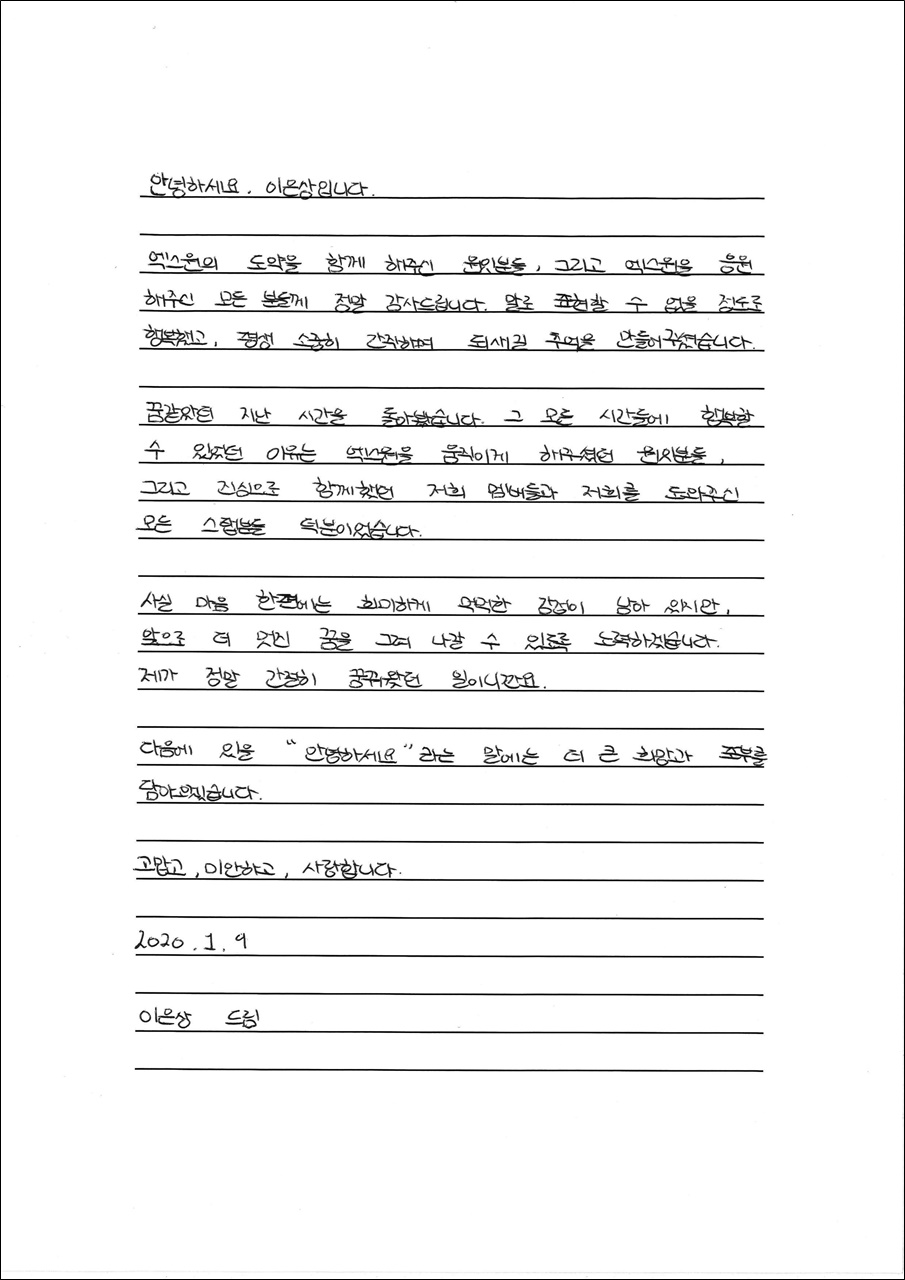 안녕하세요. 이은상입니다.
엑스원의 도약을 함께 해주신 원잇분들, 그리고 엑스원을 응원
해주신 모든 분들께 정말 감사드립니다. 말로 표현할 수 없을 정도로
행복했고, 평생 소중히 간직하며 되새길 추억을 만들어주셨습니다.
꿈같았던 지난 시간을 돌아봤습니다. 그 모든 시간들에 행복할
수 있었던 이유는 엑스원을 움직이게 해주셨던 원잇분들,
그리고 진심으로 함께했던 저희 멤버들과 저희를 도와주신
모든 스탭분들 덕분이었습니다.
사실 마음 한편에는 희미하게 먹먹한 감정이 남아 있지만,
앞으로 더 멋진 꿈을 그려 나갈 수 있도록 노력하겠습니다.
제가 정말 간절히 꿈꿔왔던 일이니깐요.
다음에 있을 "안녕하세요"라는 말에는 더 큰 희망과 포부를
담아오겠습니다.
고맙고, 미안하고, 사랑합니다.
2020.1.9
이은상 드림